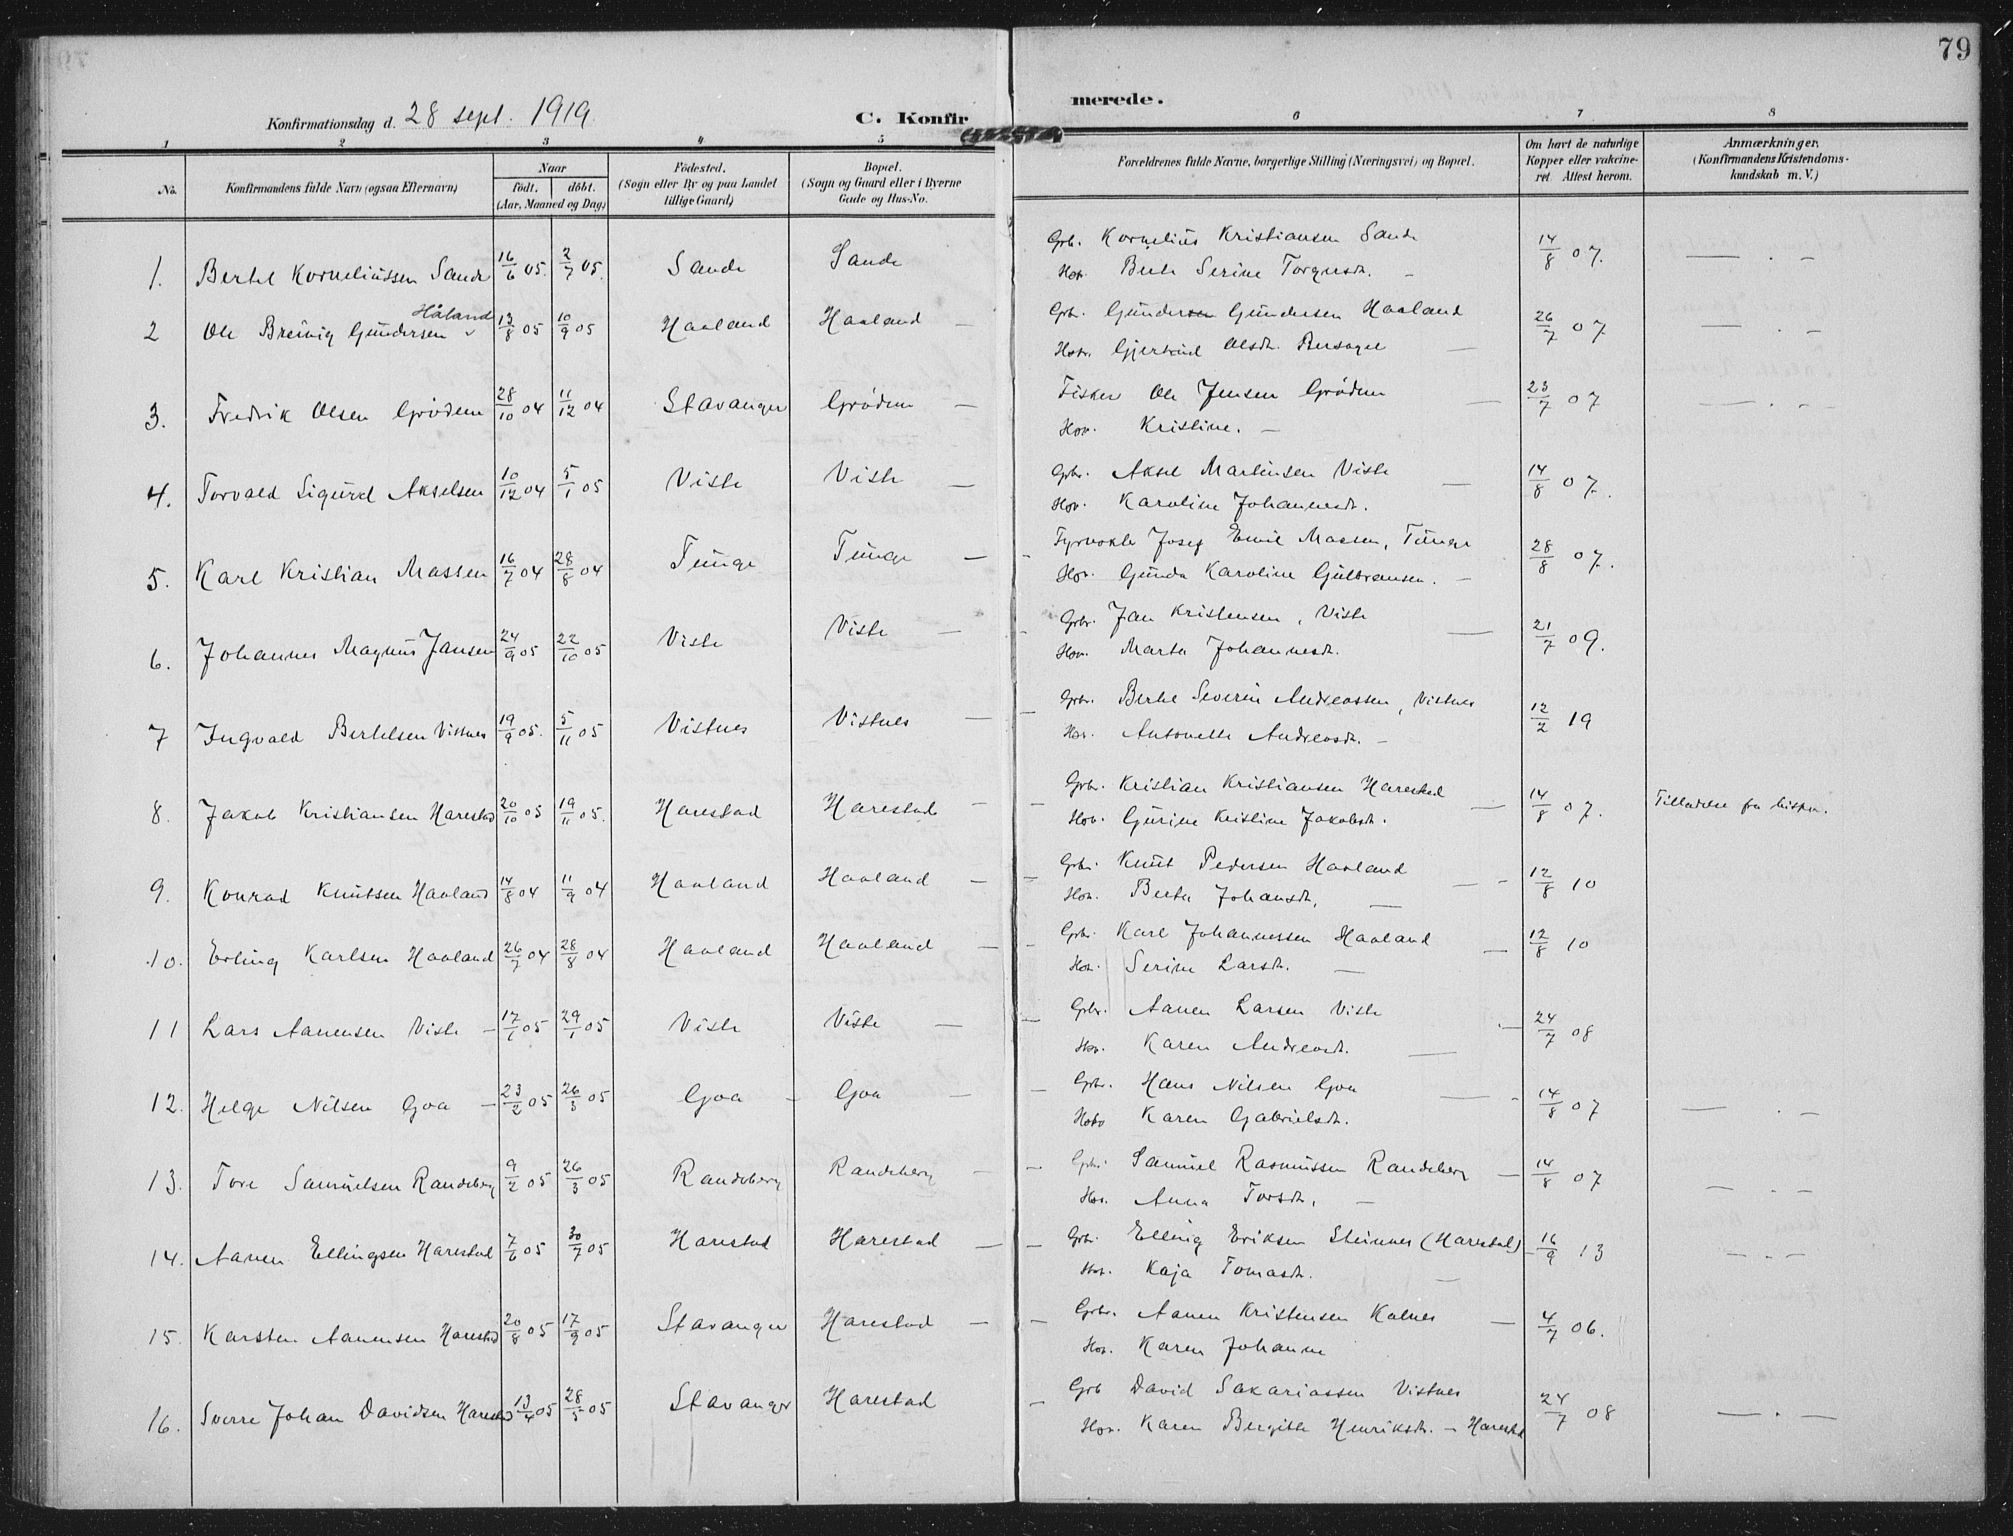 79
Konfirmationsdag d. 28 sept. 1919. C. Konfirmerede.
1 2 3 4 5 6 7 8
No. Konfirmandens fulde Navn (ogsaa Efternavn) Naar født. døbt. (Aar, Maaned og Dag) Fødested. (Sogn eller By og paa Landet tillige Gaard) Bopæl. (Sogn og Gaard eller i Byerne Gade og Hus-No. Forældrenes fulde Navne, borgerlige Stilling (Næringsvei) og Bopæl. Om havt de naturlige Kopper eller vakcineret. Attest herom. Anmærkninger. (Konfirmandens Kristendomskundskab m. V.)
1. Bertel Korneliussen Sande 16/6 05. 2/7 05. Sande Sande Grb. Kornelius Kristiansen Sande 14/8 07. — . —
Hov. Berte Serine Torgersdt. —
Håland
2 Ole Breivig Gundersen 13/8 05 10/9 05 Haaland Haaland — Grb. Gunder Gundersen Haaland 26/7 07 — . —
Hov. Gjertrud Olsdt. Bersagel —
3. Fredrik Olsen Grødem 28/10 04 11/12 04 Stavanger Grødem — Fisker Ole Jensen Grødem — 23/7 07 — . —
Hov. Kristine. —
4. Torvald Sigurd Akselsen 10/12 04 5/1 05 Viste Viste — Grb. Aksel Martinsen Viste — 14/8 07.
Hov. Karoline Johannesdt.
5. Karl Kristian Massen 16/7 04 28/8 04 Tunge Tunge — Fyrvokter Josef Emil Massen, Tunge 28/8 07.
Hov. Gunda Karoline Gulbransen. —
6. Johannes Magnus Jansen 24/9 05 22/10 05 Viste Viste — Grbr. Jan Kristensen, Viste — 21/7 09.
Hov. Marta Johannesdt.
7 Ingvald Bertelsen Vistnes 19/9 05. 5/11 05 Vistnes Vistnes — Grbr. Bertel Severin Andreassen, Vistnes 12/2 19
Hov. Antonette Andreasdt. —
8. Jakob Kristiansen Harestad 20/10 05 19/11 05. Harestad Harestad — Grbr. Kristian Kristiansen Harestad — 14/8 07. Tilladelse fra bispen.
Hov. Gurine Kristine Jakobsdt.
9. Konrad Knutsen Haaland 14/8 04 11/9 04 Haaland Haaland — Grbr. Knut Pedersen Haaland — 12/8 10
Hov. Berta Johansdt. —
10. Erling Karlsen Haaland 26/7 04 28/8 04 Haaland Haaland — Grbr. Karl Johannessen Haaland — 12/8 10
Hov. Serine Larsdt. —
11 Lars Aanensen Viste — 17/1 05 29/1 05 Viste Viste — Grbr. Aanen Larsen Viste — 24/7 08
Hov. Karen Andreasdt. —
12. Helge Nilsen Goa — 23/2 05 26/3 05 Goa — Goa — Grbr. Hans Nilsen Goa — 14/8 07 — . —
Hov. Karen Gabrielsdt.
13. Tore Samuelsen Randeberg 9/2 05 26/3 05 Randeberg Randeberg — Grbr. Samuel Rasmussen Randeberg — 14/8 07 — . —
Hov. Anna Torsdt. —
14. Aanen Ellingsen Harestad 7/6 05 30/7 05 Harestad Harestad — Grbr. Elling Eriksen Steinnes (Harestad) 16/9 13 — . —
Hov. Kaja Tomasdt. —
15. Karsten Aanensen Harestad 20/8 05 17/9 05 Stavanger Harestad — Grbr. Aanen Kristensen Kalnes — 4/7 06.
Hov. Karen Johanne
16. Sverre Johan Davidsen Harestad 13/4 05 28/5 05 Stavanger Harestad Grb David Sakariassen Vistnes 24/7 08 — . —
Hov. Karen Bergitte Henriksdt. — Harestad